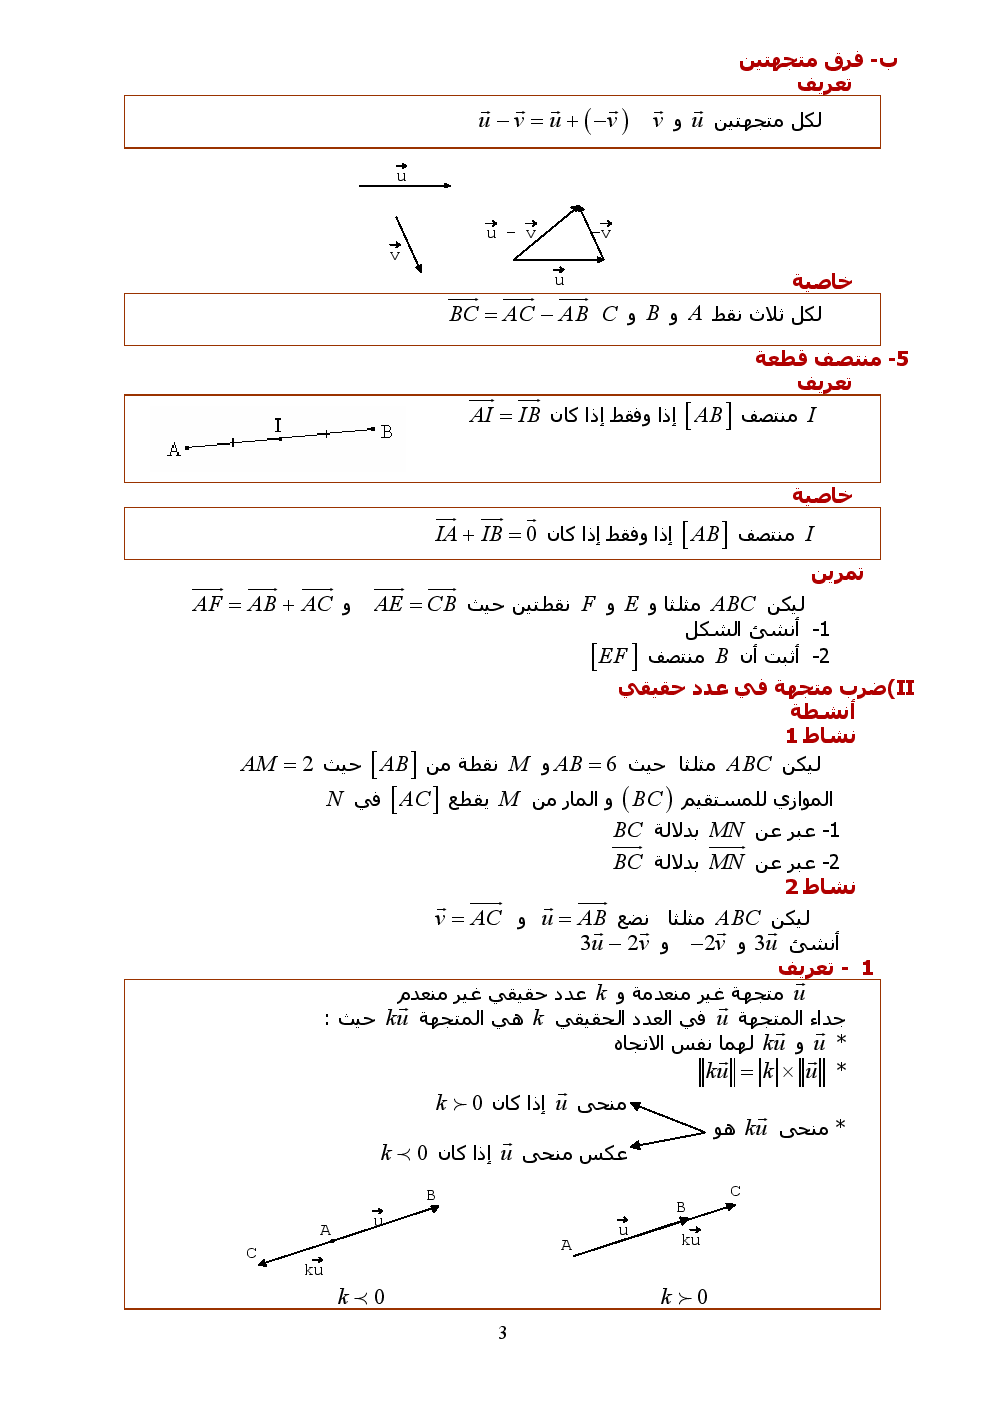 ب- فرق متجهتين
تعريف
لكل متجهتين $\vec{u}$ و $\vec{v}$ $\vec{u}-\vec{v}=\vec{u}+(-\vec{v})$
$\vec{u}$
$\vec{v}$
$\vec{u}-\vec{v}$ $-\vec{v}$
$\vec{u}$
خاصية
لكل ثلاث نقط A و B و C $\overrightarrow{BC}=\overrightarrow{AC}-\overrightarrow{AB}$
5- منتصف قطعة
تعريف
I منتصف [AB] إذا وفقط إذا كان $\overrightarrow{AI}=\overrightarrow{IB}$
A I B
خاصية
I منتصف [AB] إذا وفقط إذا كان $\overrightarrow{IA}+\overrightarrow{IB}=\vec{0}$
تمرين
ليكن ABC مثلثا و E و F نقطتين حيث $\overrightarrow{AE}=\overrightarrow{CB}$ و $\overrightarrow{AF}=\overrightarrow{AB}+\overrightarrow{AC}$
1- أنشئ الشكل
2- أثبت أن B منتصف [EF]
II)ضرب متجهة في عدد حقيقي
أنشطة
نشاط 1
ليكن ABC مثلثا حيث AB = 6 و M نقطة من [AB] حيث AM = 2
الموازي للمستقيم (BC) و المار من M يقطع [AC] في N
1- عبر عن MN بدلالة BC
2- عبر عن $\overrightarrow{MN}$ بدلالة $\overrightarrow{BC}$
نشاط 2
ليكن ABC مثلثا نضع $\vec{u}=\overrightarrow{AB}$ و $\vec{v}=\overrightarrow{AC}$
أنشئ $3\vec{u}$ و $-2\vec{v}$ و $3\vec{u}-2\vec{v}$
1 - تعريف
$\vec{u}$ متجهة غير منعدمة و k عدد حقيقي غير منعدم
جداء المتجهة $\vec{u}$ في العدد الحقيقي k هي المتجهة $k\vec{u}$ حيث :
* $\vec{u}$ و $k\vec{u}$ لهما نفس الاتجاه
* $\|k\vec{u}\|=|k|\times\|\vec{u}\|$
منحى $\vec{u}$ إذا كان $k \succ 0$
* منحى $k\vec{u}$ هو
عكس منحى $\vec{u}$ إذا كان $k \prec 0$
A B C $\vec{u}$ $k\vec{u}$
B A C $\vec{u}$ $k\vec{u}$
$k \succ 0$ $k \prec 0$
3